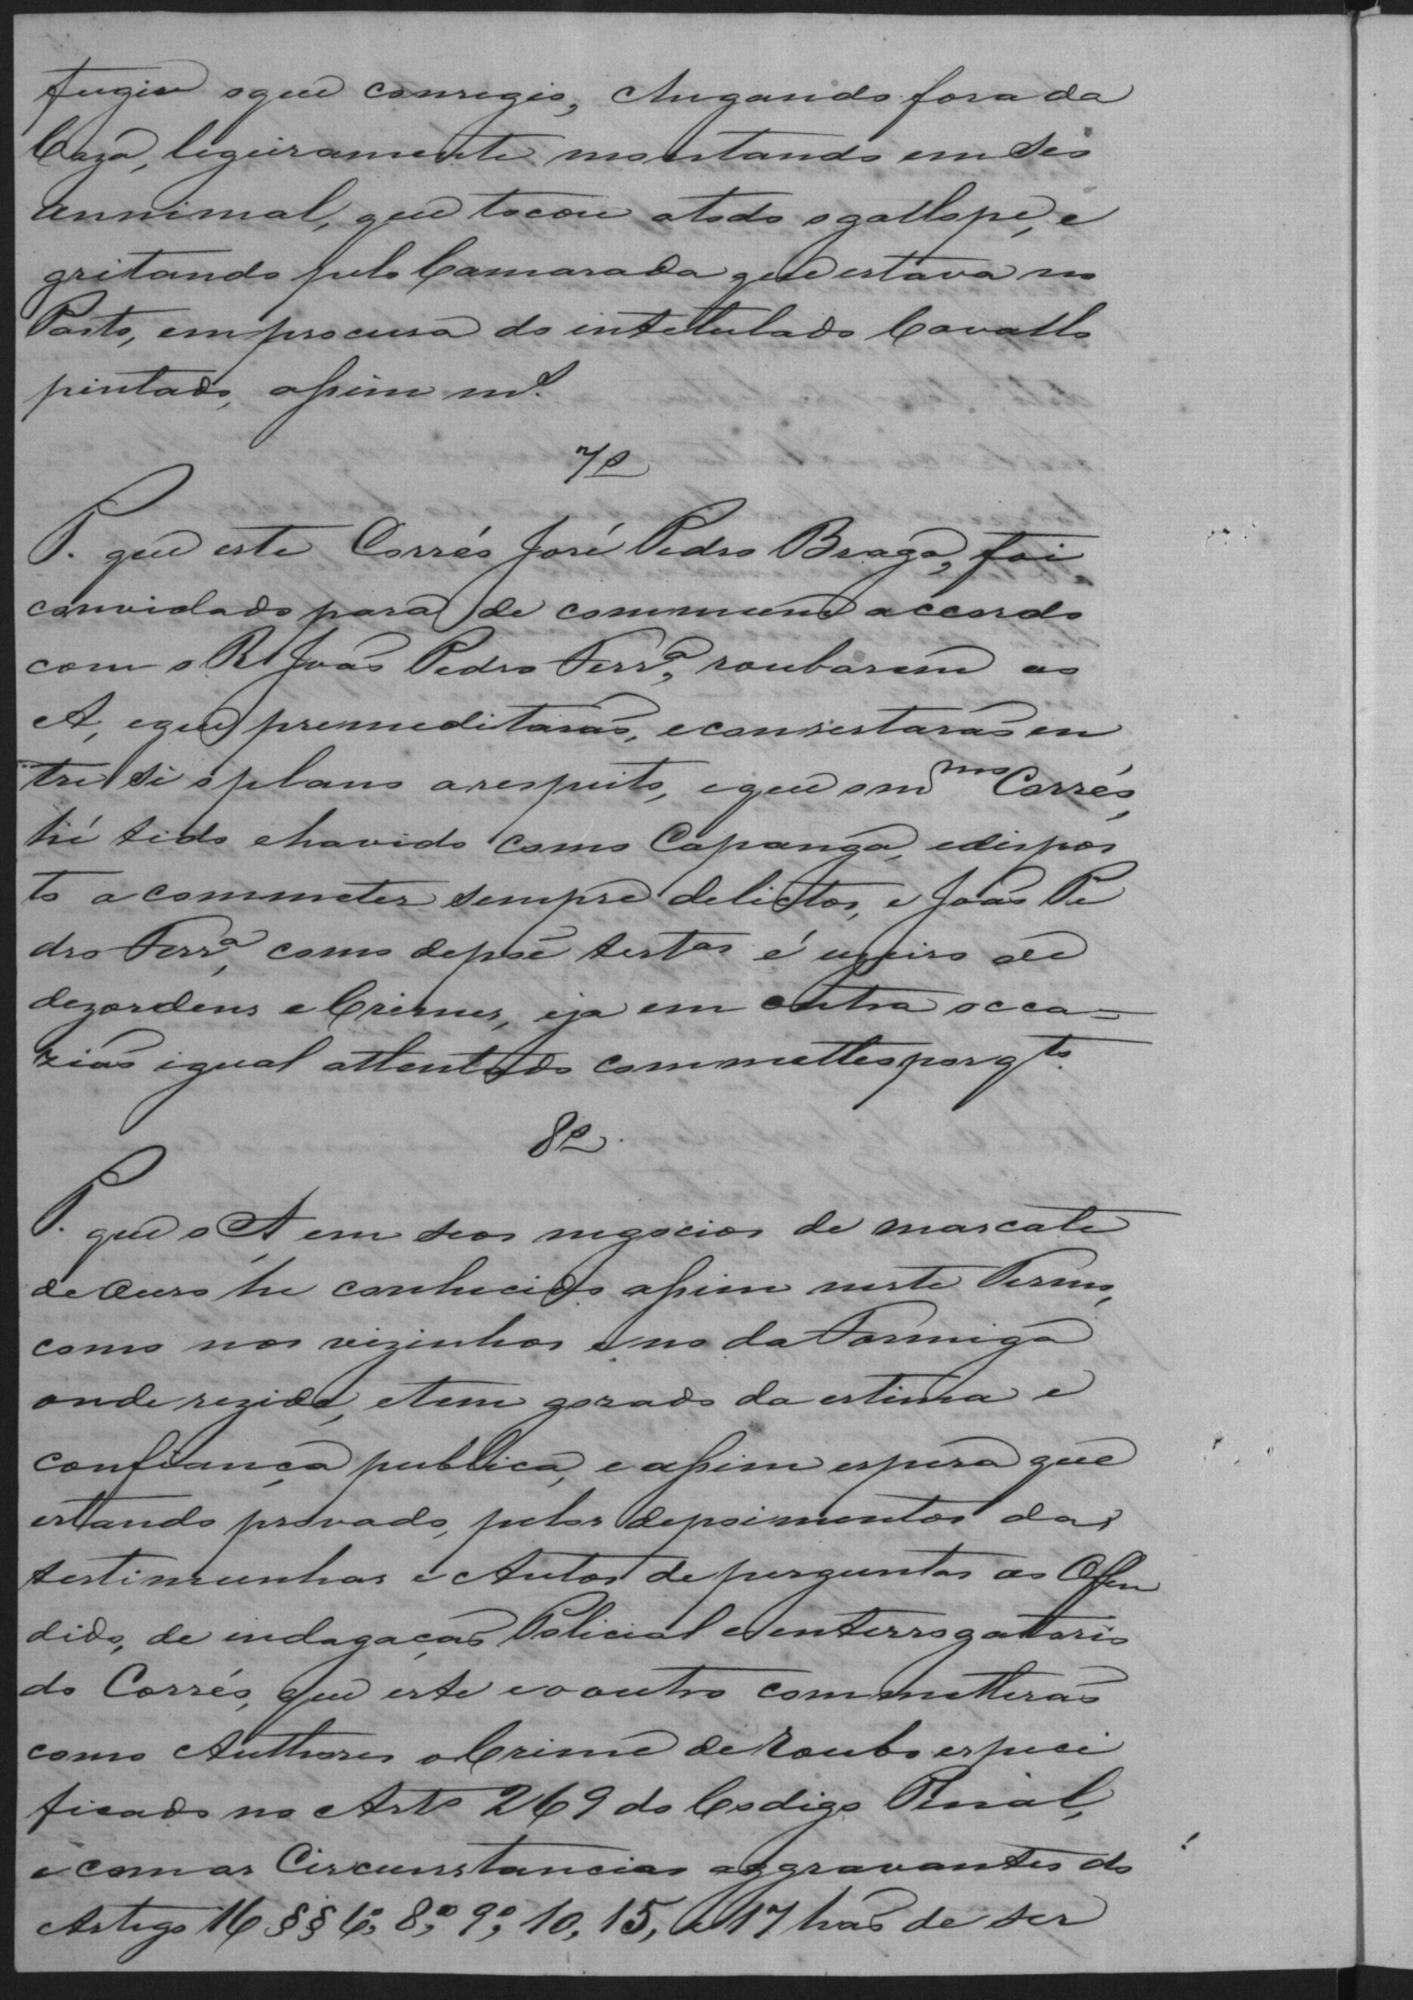 fugir o que consegio, chegando fora da
Caza, ligeiramente montando em seo
annimal, que tocou a todo o gallope, e
gritando pelo Camarada que estava no
Pasto, em procura do intitulado Cavallo
pintado, assim m.
7º
P. que este Corréo José Pedro Braga, foi
convidado para de commum accordo
com o R João Pedro Ferrª, roubarem ao
A, e que premeditarão, e consertarão en
tre si o plano a respeito, e que o mmo Corréo,
hé tido e havido como Capanga, e dispos
to a commeter sempre delictos, e João Pe
dro Ferrª, como depõe testas é uzeiro de
dezordens e Crimes, e ja em outra occa=
zião igual attentado commetteo porqto
8º
P. que o A em seos negocios de mascate
de ouro he conhecido assim neste Termo,
como nos vizinhos e no da Formiga
onde rezide, e tem gozado da estima e
confiança publica, e assim espera que
estando provado, pelos depoimentos das
testimunhas e Autos de perguntas ao Offen
dido, de indagação Policial e interrogatorio
do Corréo, que este e o outro commetterão
como Authores o Crime de Roubo especi
ficado no Arto 269 do Codigo Penal,
e com as Circunstancias aggravantes do
Artigo 16 §§ 6º, 8º, 9º, 10, 15, e 17 hão de ser